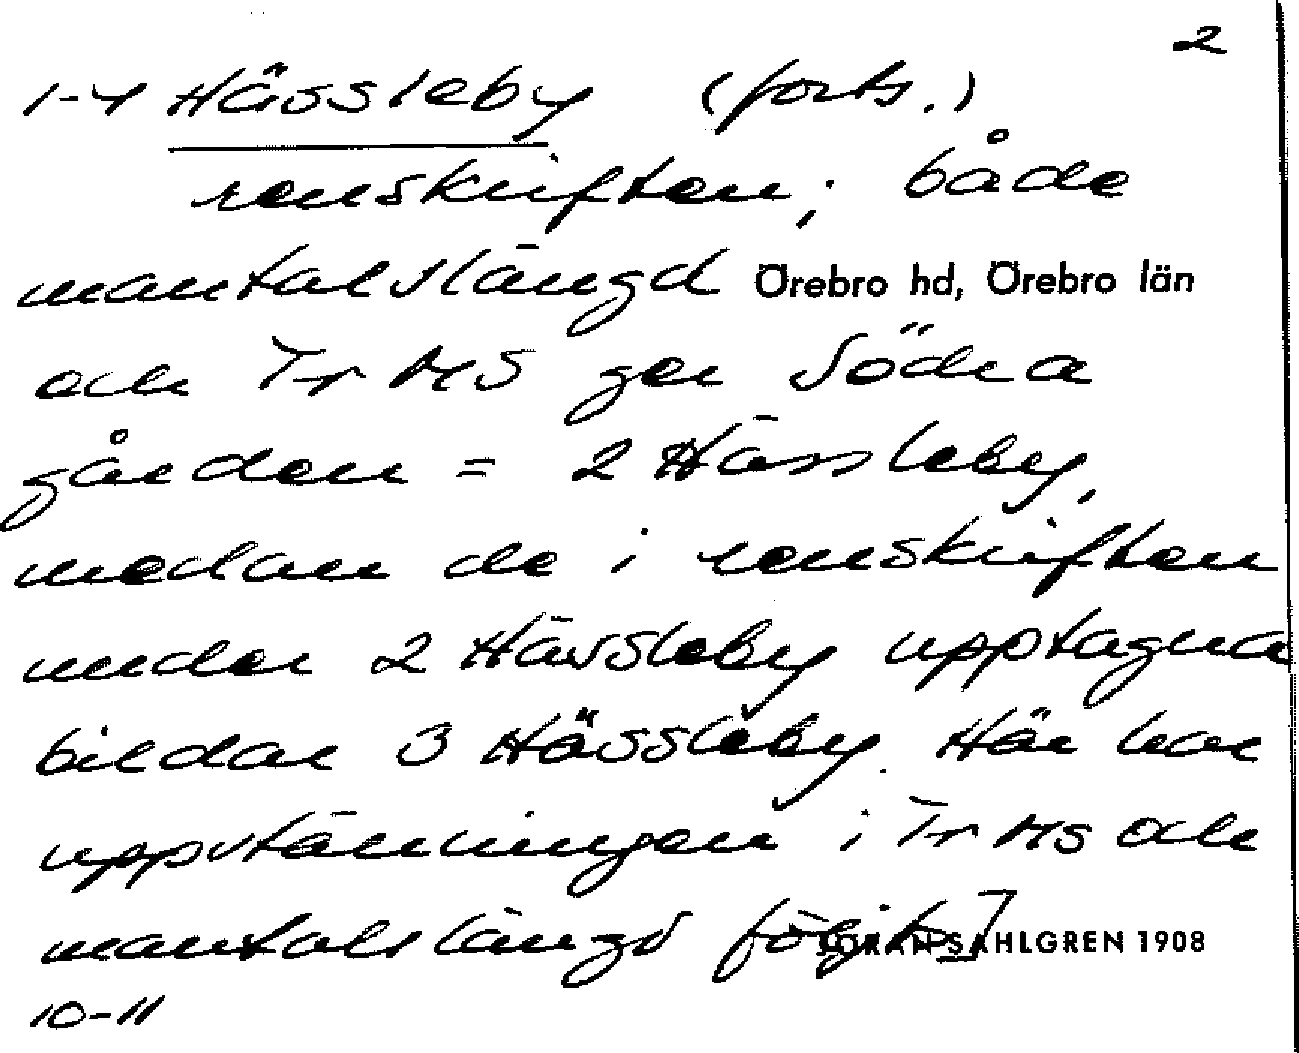 2
1-4 Hässleby (forts.)
renskriften; både
mantalslängd Örebro hd, Örebro län
och Tr MS ger Södra
gården = 2 Hässleby,
medan de i renskriften
under 2 Hässleby upptagna
bildar 3 Hässleby. Här har
uppställningen i Tr MS och
mantalslängd följts]
JÖRAN SAHLGREN 1908
10-11